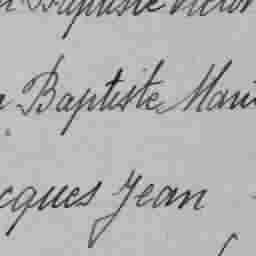 Baptiste Victor
Baptiste Mari
cques Jean